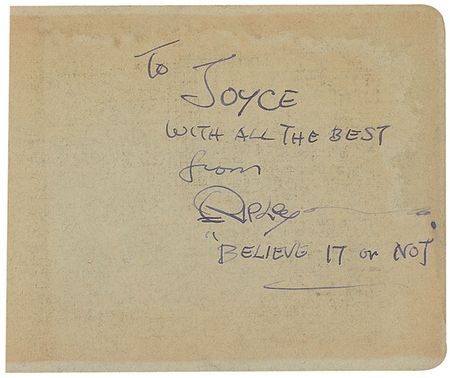 To
JOYCE
WITH ALL THE BEST
from
Ripley
"BELIEVE IT or NOT"